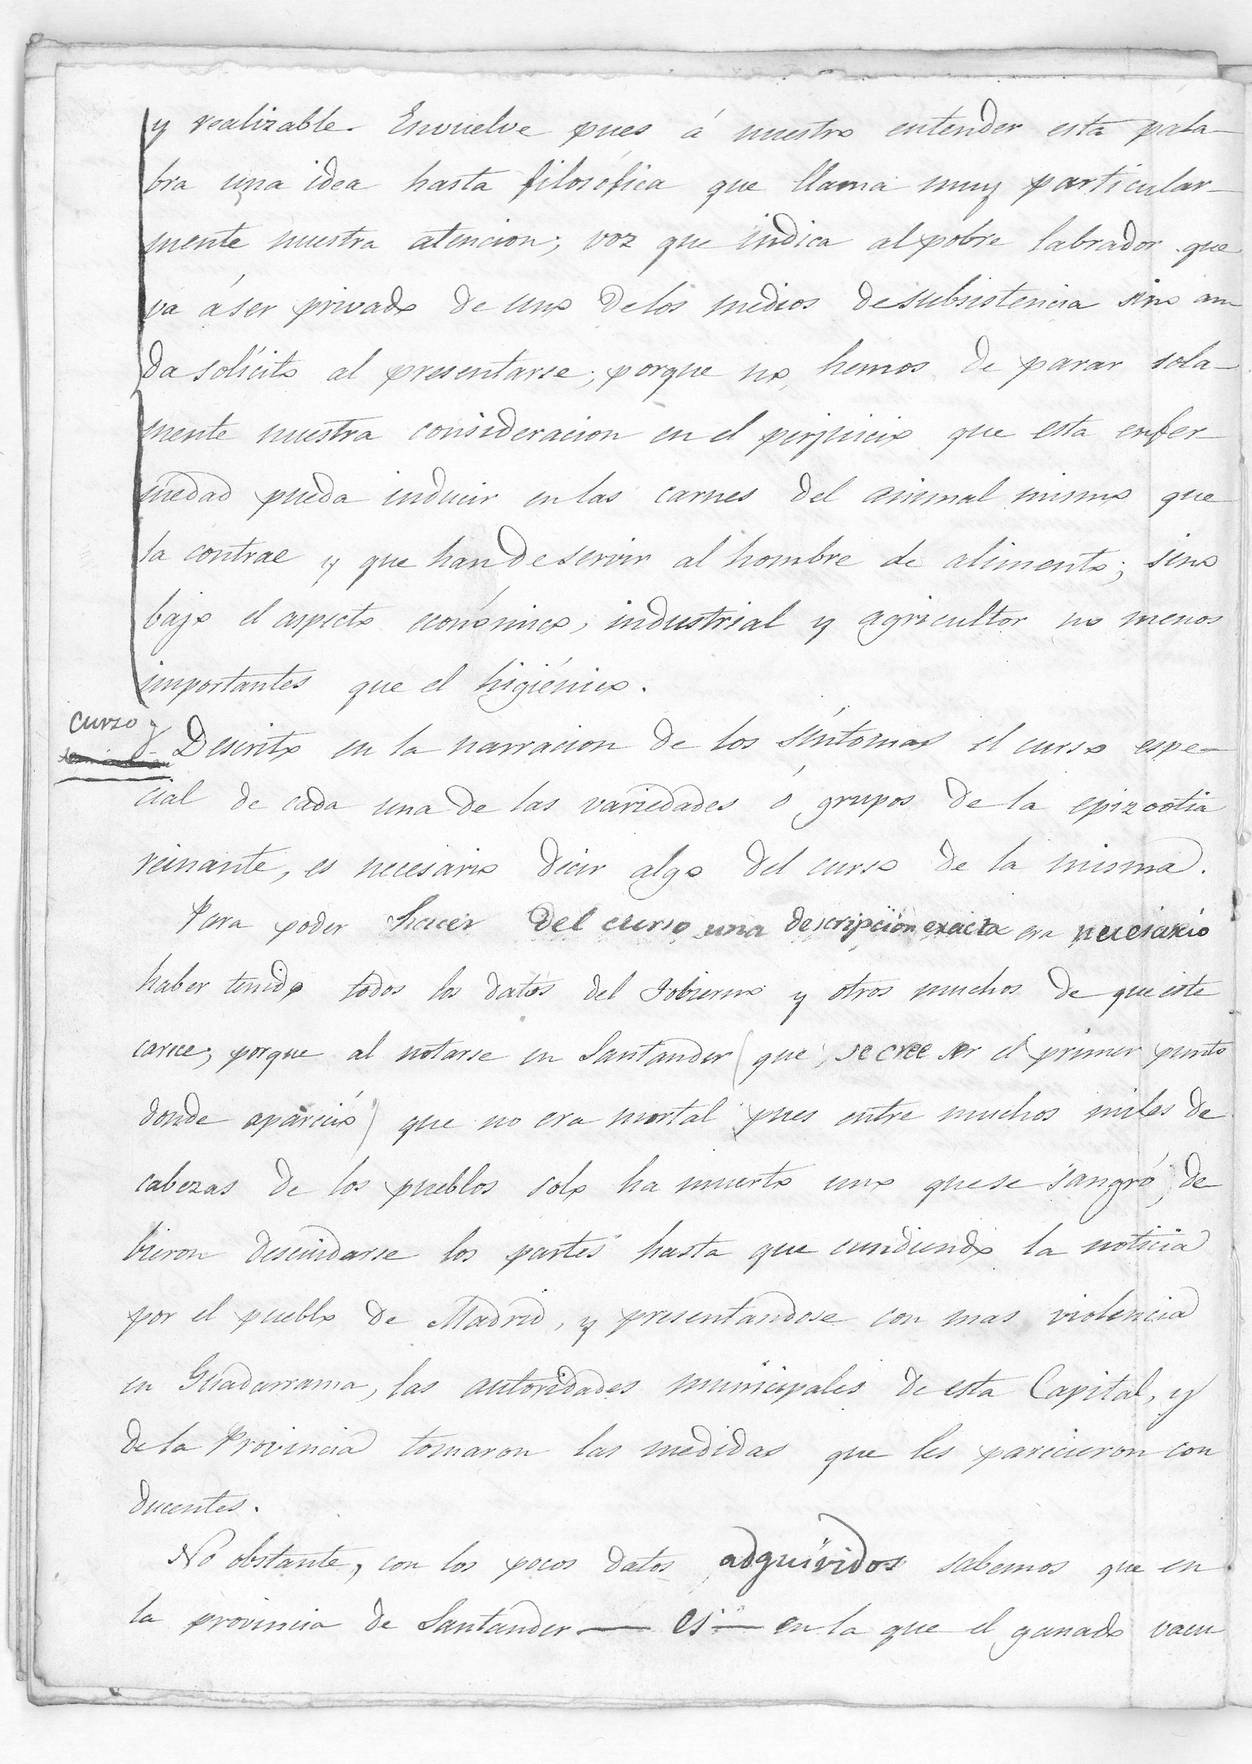 y realizable. Envuelve pues á nuestro entender esta pala-
bra una idea hasta filosófica que llama muy particular-
mente nuestra atencion; voz que indica al pobre labrador que
va á ser privado de uno de los medios de subsistencia sino an-
da solícito al presentarse; porque no, hemos de parar sola-
mente nuestra consideracion en el perjuicio que esta enfer-
medad pueda inducir en las carnes del animal mismo que
la contrae y que han de servir al hombre de alimento; sino
bajo el aspecto económico, industrial y agricultor no menos
importantes que el higiénico.
Curso y
Descrito en la narracion de los síntomas el curso espe-
cial de cada una de las variedades ó grupos de la epizootia
reinante, es necesario decir algo del curso de la misma.
Para poder hacer del curso una descripción exacta era necesario
haber tenido todos los datos del Gobierno y otros muchos de que este
carece; porque al notarse en Santander (que se cree ser el primer punto
donde apareció) que no era mortal pues entre muchos miles de
cabezas de los pueblos solo ha muerto uno que se sangró, de
bieron descuidarse los partes hasta que cundiendo la noticia
por el pueblo de Madrid, y presentandose con mas violencia
en Guadarrama, las autoridades municipales de esta Capital, y
de la Provincia tomaron las medidas que les parecieron con
ducentes.
No obstante, con los pocos datos adquiridos sabemos que en
la provincia de Santander — es — en la que el ganado vacu